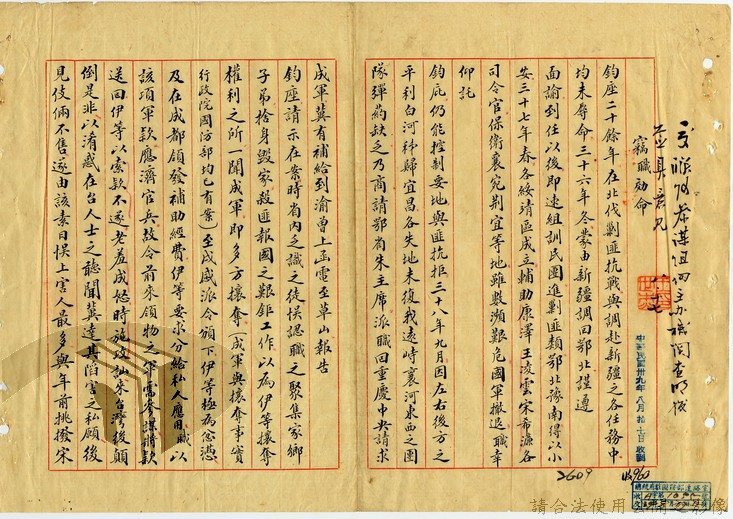 竊職効命
鈞座二十餘年在北伐剿匪抗戰與調赴新疆之各任務中
均未辱命三十六年冬蒙由新疆調回鄂北謹遵
面諭到任以後即速組訓民團進剿匪類鄂北豫南得以小
安三十七年春各綏靖區成立輔助康澤王凌雲宋希濂各
司令官保衛襄宛荆宜等地雖數瀕艱危國軍撤退職幸
仰託
鈞庇仍能控制要地與匪抗拒三十八年九月因左右後方之
平利白河秭歸宜昌各失地未復我遠峙襄河東西之團
隊彈药缺乏乃商請鄂省朱主席派職回重慶中央請求
成軍冀有補給到渝曹上函電至草山報告
鈞座請示在案時省內之識之從悞認職之聚集家鄉
子弟捨身毀家殺匪報國之艱鉅工作以為伊等攘奪
權利之所一聞成軍即多方攘奪(成軍與攘奪事實
行政院國防部均已有案)至成威派令頒下伊等極為忿憑
及在成都領發補助經費伊等要求分給私人應用職以
該項軍款應濟官兵故令前來領物之軍需參謀將款
送回伊等以索款不遂老羞成怒時施攻訕來台灣後顛
倒是非以淆惑在台人士之聽聞冀達其陷害之私願後
見伎倆不售遂由該素日悞上害人最多與年前挑撥宋
中華民國卅九年八月拾七日收到
2609
收960
請合法使用
影像